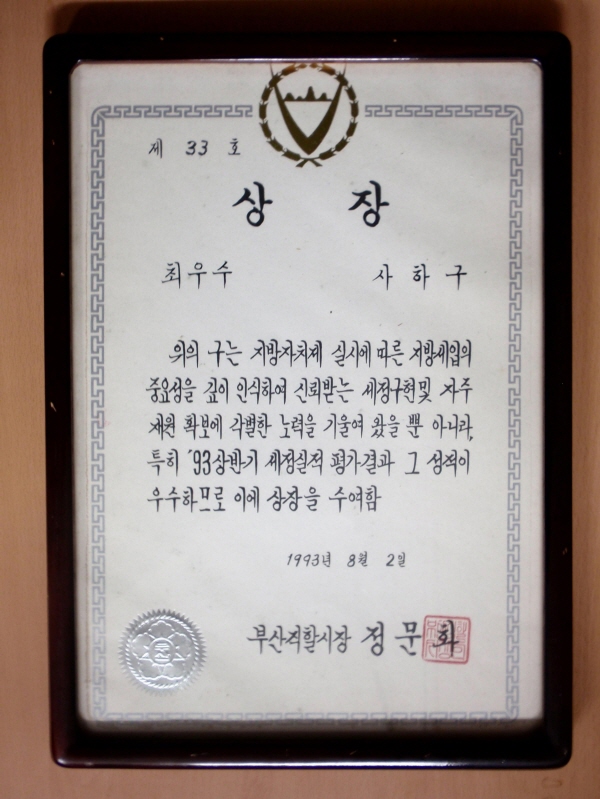 제 33 호
상 장
최우수 사하구
위의 구는 지방자치제 실시에 따른 지방세입의
중요성을 깊이 인식하여 신뢰받는 세정구현및 자주
재원 확보에 각별한 노력을 기울여 왔을 뿐 아니라,
특히 '93상반기 세정실적 평가결과 그 성적이
우수하므로 이에 상장을 수여함
1993년 8월 2일
부산직할시장 정문화